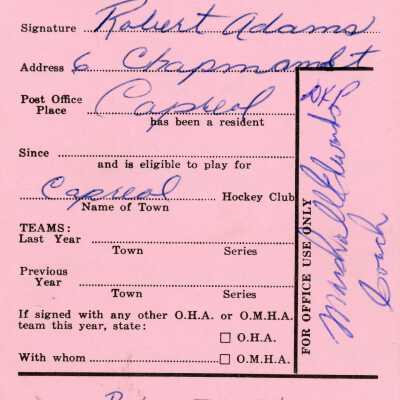 Signature Robert Adams
Address 6 Chapman St
Post Office
Place Capreol
has been a resident
Since
and is eligible to play for
Capreol Hockey Club
Name of Town
TEAMS:
Last Year
Town Series
Previous
Year
Town Series
If signed with any other O.H.A. or O.M.H.A.
team this year, state:
☐ O.H.A.
With whom ☐ O.M.H.A.
FOR OFFICE USE ONLY
Marshall
Coach